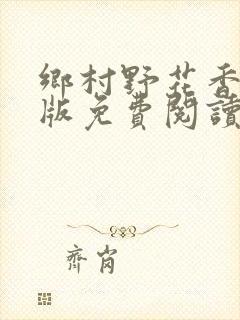 鄉村野花香
版免費閱讀
齊肖